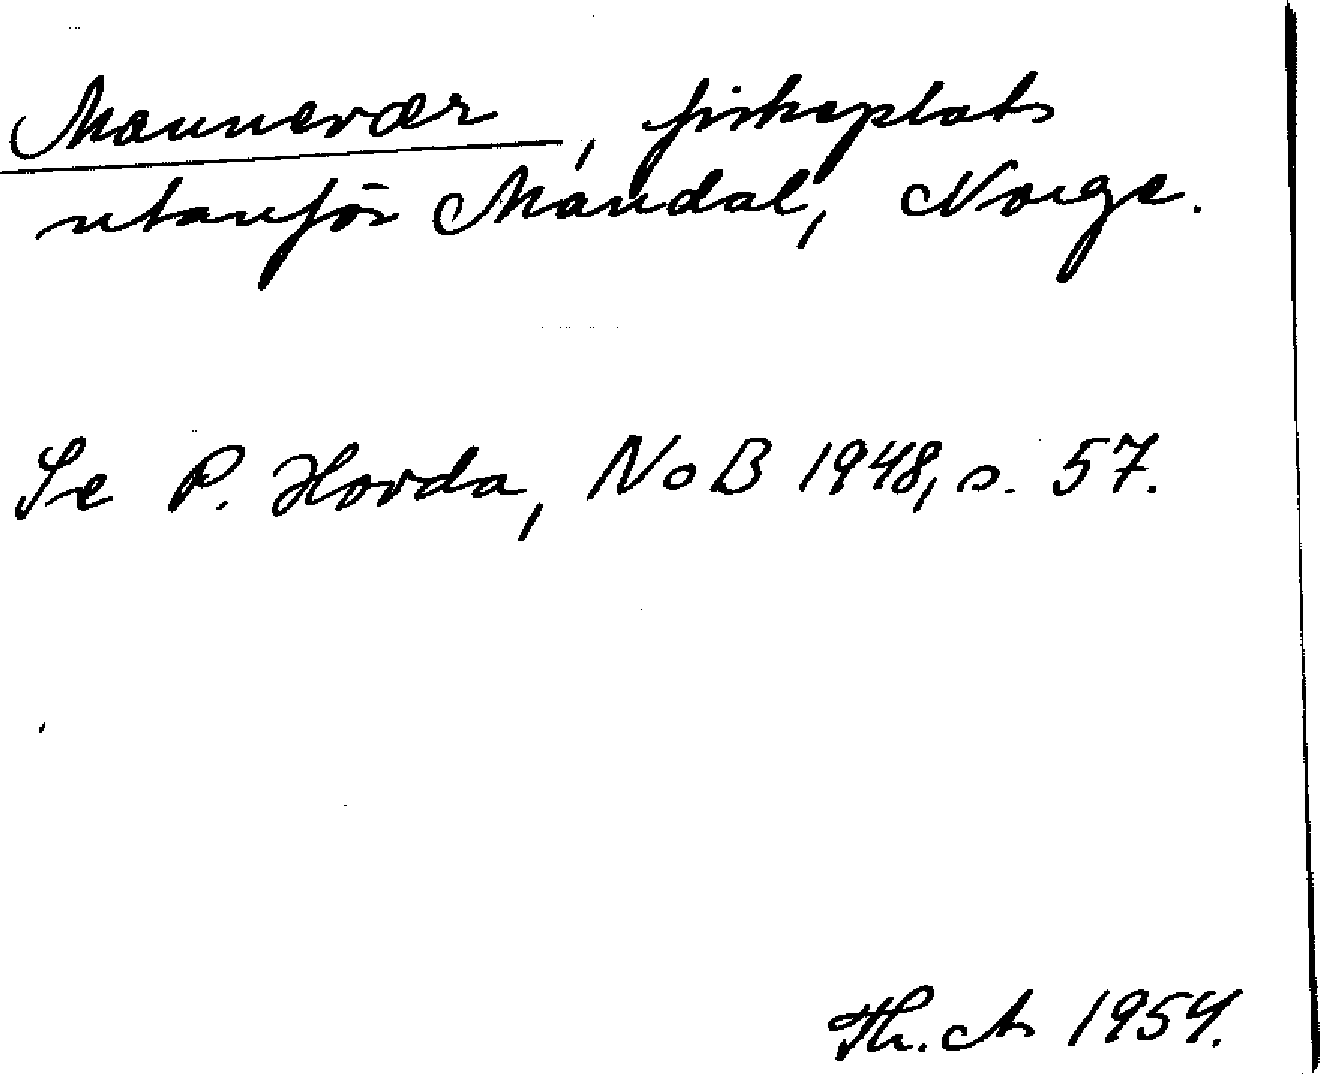 Mannevær, fiskeplats
utanför Mandal, Norge.
Se P. Hovda, NoB 1948, s. 57.
Th. A 1954.